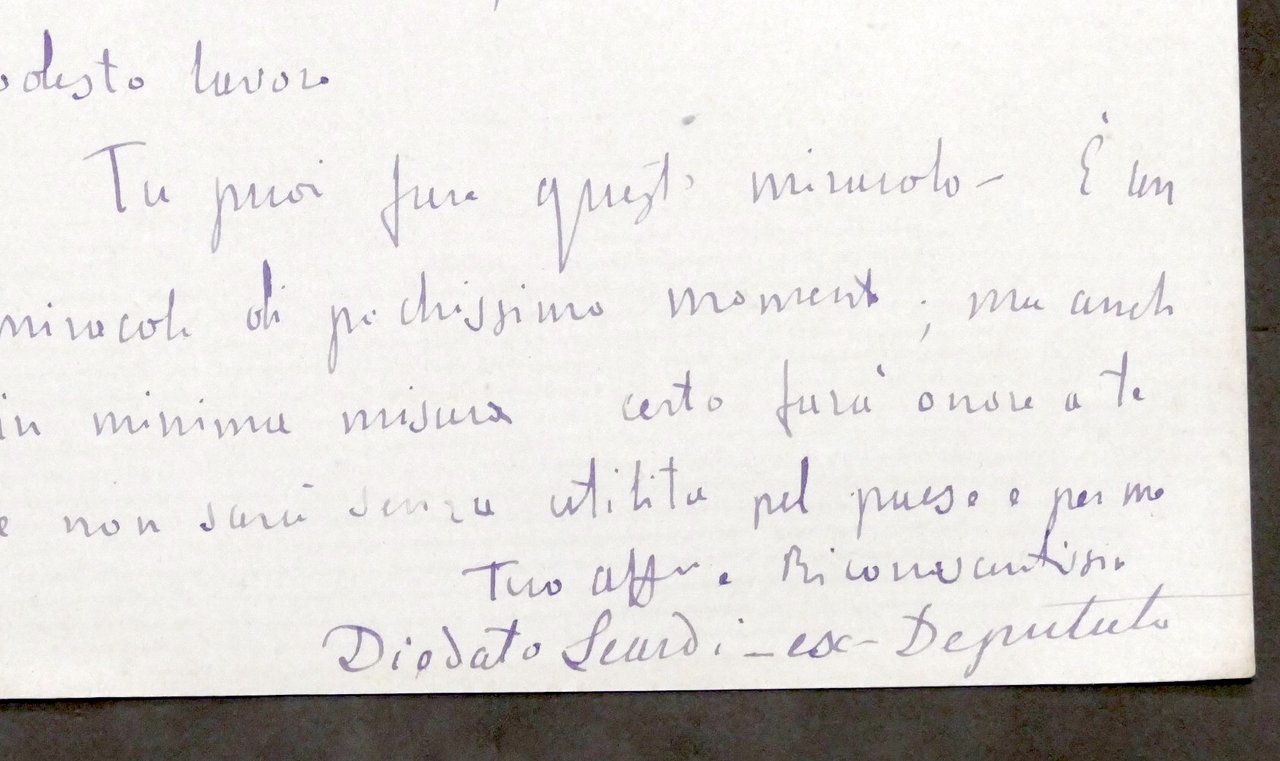 odesto lavoro
Tu puoi fare questo miracolo - È un
miracolo di pochissimo momento; ma anche
in minima misura certo farà onore a te
e non sarà senza utilità pel paese e per me
Tuo affmo e Riconoscentissimo
Diodato Leardi - ex-Deputato